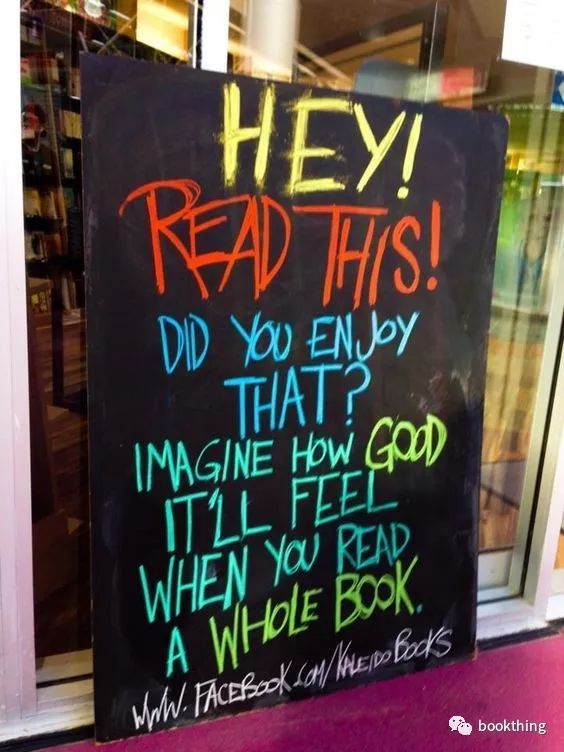 HEY!
READ THIS!
DID YOU ENJOY
THAT?
IMAGINE HOW GOOD
IT'LL FEEL
WHEN YOU READ
A WHOLE BOOK.
WWW.FACEBOOK.COM/KALEIDOBOOKS
bookthing